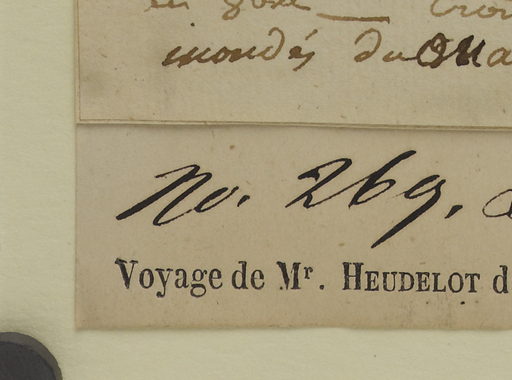 inondés du Oua
No. 269.
Voyage de Mr. HEUDELOT d